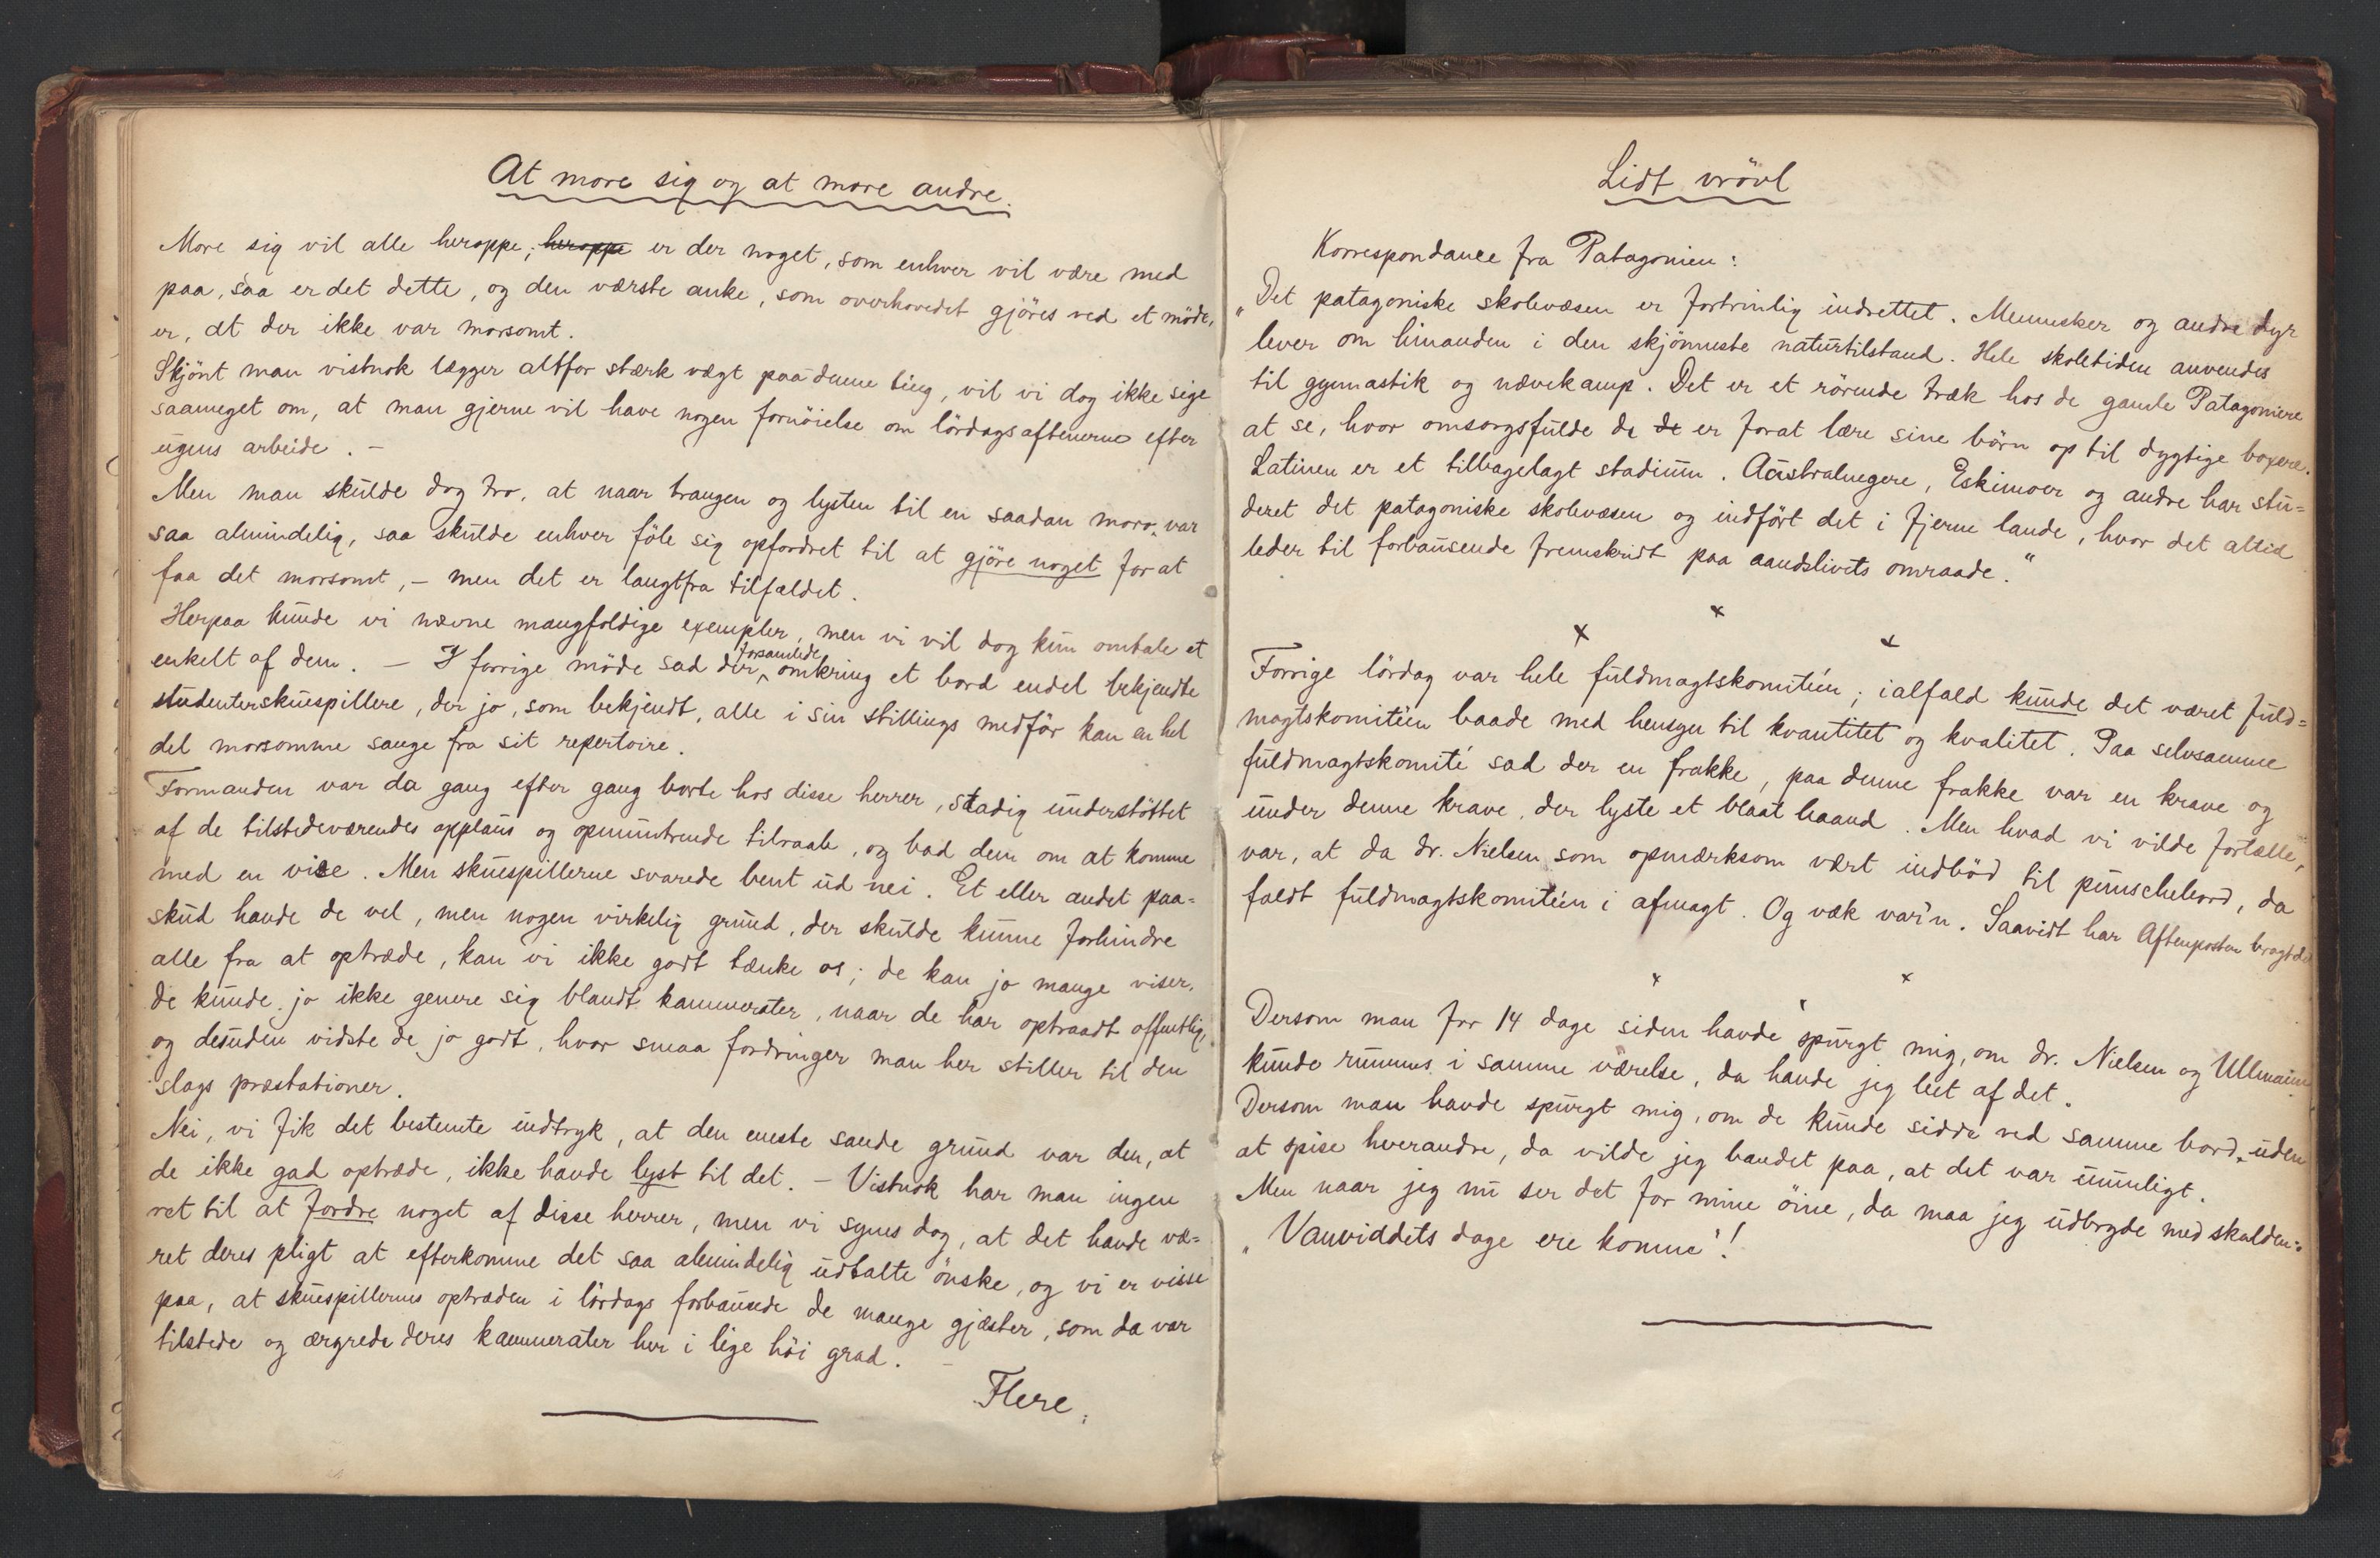 At more sig og at more andre.
More sig vil alle heroppe; heroppe er der noget, som enhver vil være med
paa, saa er det dette, og den værste anke, som overhovedet gjöres ved et möde,
er, at der ikke var morsomt.
Skjönt man vistnok lægger altfor stærk vægt paa denne ting, vil vi dog ikke sige
saameget om, at man gjerne vil have nogen fornöielse om lördagsaftenerne efter
ugens arbeide. —
Men man skulde dog tro, at naar trangen og lysten til en saadan moro var
saa almindelig, saa skulde enhver föle sig opfordret til at gjöre noget for at
faa det morsomt, — men det er langtfra tilfældet.
Herpaa kunde vi nævne mangfoldige exempler, men vi vil dog kun omtale et
enkelt af dem. — I forrige möde sad der forsamlede omkring et bord endel bekjendte
studenterskuespillere, der jo, som bekjendt, alle i sin stillings medför kan en hel
del morsomme sange fra sit repertoire.
Formanden var da gang efter gang borte hos disse herrer, stadig understöttet
af de tilstedeværendes applaus og opmuntrende tilraab, og bad dem om at komme
med en vise. Men skuespillerne svarede bent ud nei. Et eller andet paa=
skud havde de vel, men nogen virkelig grund, der skulde kunne forhindre
alle fra at optræde, kan vi ikke godt tænke os; de kan jo mange viser,
de kunde jo ikke genere sig blandt kammerater, naar de har optraadt offentlig,
og desuden vidste de jo godt, hvor smaa fordringer man her stiller til den
slags præstationer.
Nei, vi fik det bestemte indtryk, at den eneste sande grund var den, at
de ikke gad optræde, ikke havde lyst til det. — Vistnok har man ingen
ret til at fordre noget af disse herrer, men vi synes dog, at det havde væ=
ret deres pligt at efterkomme det saa almindelig udtalte önske, og vi er visse
paa, at skuespillernes optræden i lördags forbausede de mange gjæster, som da var
tilstede og ærgrede deres kammerater her i lige höi grad. —
Flere.
Lidt vrövl
Korrespondance fra Patagonien:
„Det patagoniske skolevæsen er fortrinlig indrettet. Mennesker og andre dyr
lever om hinanden i den skjönneste naturtilstand. Hele skoletiden anvendes
til gymnastik og nævekamp. Det er et rörende træk hos de gamle Patagoniere
at se, hvor omsorgsfulde de de er for at lære sine börn op til dygtige boxere.
Latinen er et tilbagelagt stadium. Australnegere, Eskimoer og andre har stu=
deret det patagoniske skolevæsen og indfört det i fjerne lande, hvor det altid
leder til forbausende fremskridt paa aandslivets omraade."
x x x
Forrige lördag var hele fuldmagtskomitéen; ialfald kunde det været fuld=
magtskomitéen baade med hensyn til kvantitet og kvalitet. Paa selvsamme
fuldmagtskomité sad der en frakke, paa denne frakke var en krave og
under denne krave, der lyste et blaat baand. Men hvad vi vilde fortælle,
var, at da dr. Nielsen som opmærksom vært indböd til punschebord, da
faldt fuldmagtskomitéen i afmagt. Og væk var'n. Saavidt har Aftenposten bragt det
x x x
Dersom man for 14 dage siden havde spurgt mig, om dr. Nielsen og Ullmann
kunde rummes i samme værelse, da havde jeg leet af det.
Dersom man havde spurgt mig, om de kunde sidde ved samme bord, uden
at spise hverandre, da vilde jeg bandet paa, at det var umuligt.
Men naar jeg nu ser det for mine öine, da maa jeg udbryde med skalden:
„Vanviddets dage ere komne"!